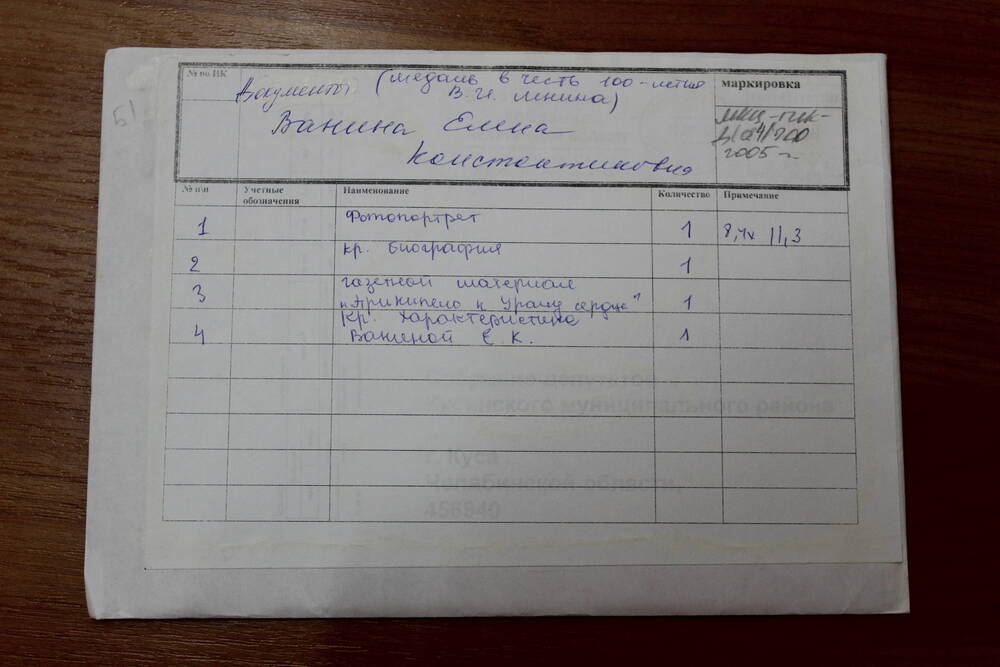 Б1
№ по НК
Документы (медаль в честь 100-летия
В.И. Ленина)
Ванина Елена
Константиновна
маркировка
2005 г.
№ п\п Учетные обозначения Наименование Количество Примечание
1 Фотопортрет 1 8,4х 11,3
2 кр. биография 1
3 газетный материал
"Прикипело к Уралу сердце" 1
4 кр. характеристика
Ваниной Е К. 1
Собрание депутатов
Кусинского муниципального района
г. Куса
Челябинской области,
456940